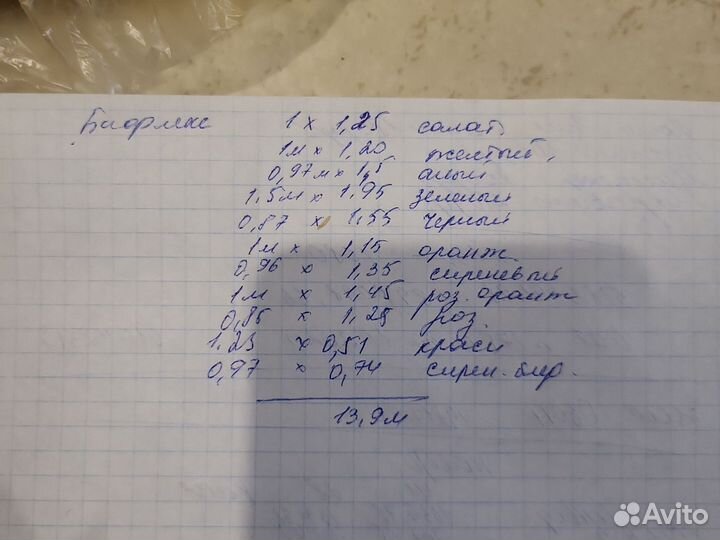 Бифлекс 1 x 1,25 салат.
1м x 1,20 желтый,
0,97м x 1,5 алый
1,5м x 1,95 зеленый
0,87 x 1,55 черный
1м x 1,15 оранж.
0,96 x 1,35 сиреневый
1м x 1,45 роз. оранж
0,85 x 1,25 роз.
1.23 x 0,51 красн
0,97 x 0,74 сирен. бир.
13,9м
Avito